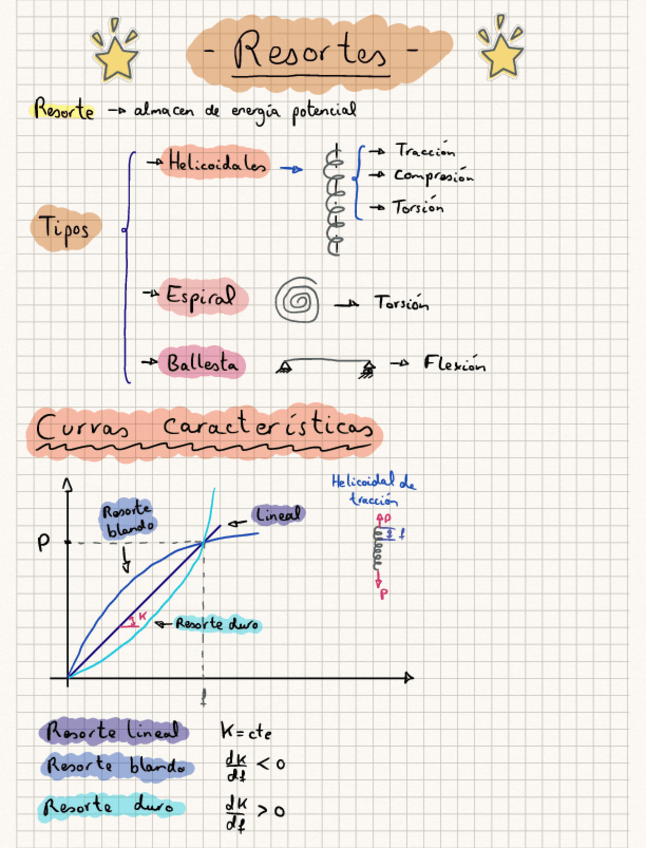 - Resortes -
Resorte → almacen de energía potencial
Tipos
→ Helicoidales →
→ Tracción
→ Compresión
→ Torsión
→ Espiral → Torsión
→ Ballesta → Flexión
Curvas características
Resorte
blando
Lineal
P
K
← Resorte duro
f
Helicoidal de
tracción
P
f
P
Resorte lineal K = cte
Resorte blando dK/df < 0
Resorte duro dK/df > 0